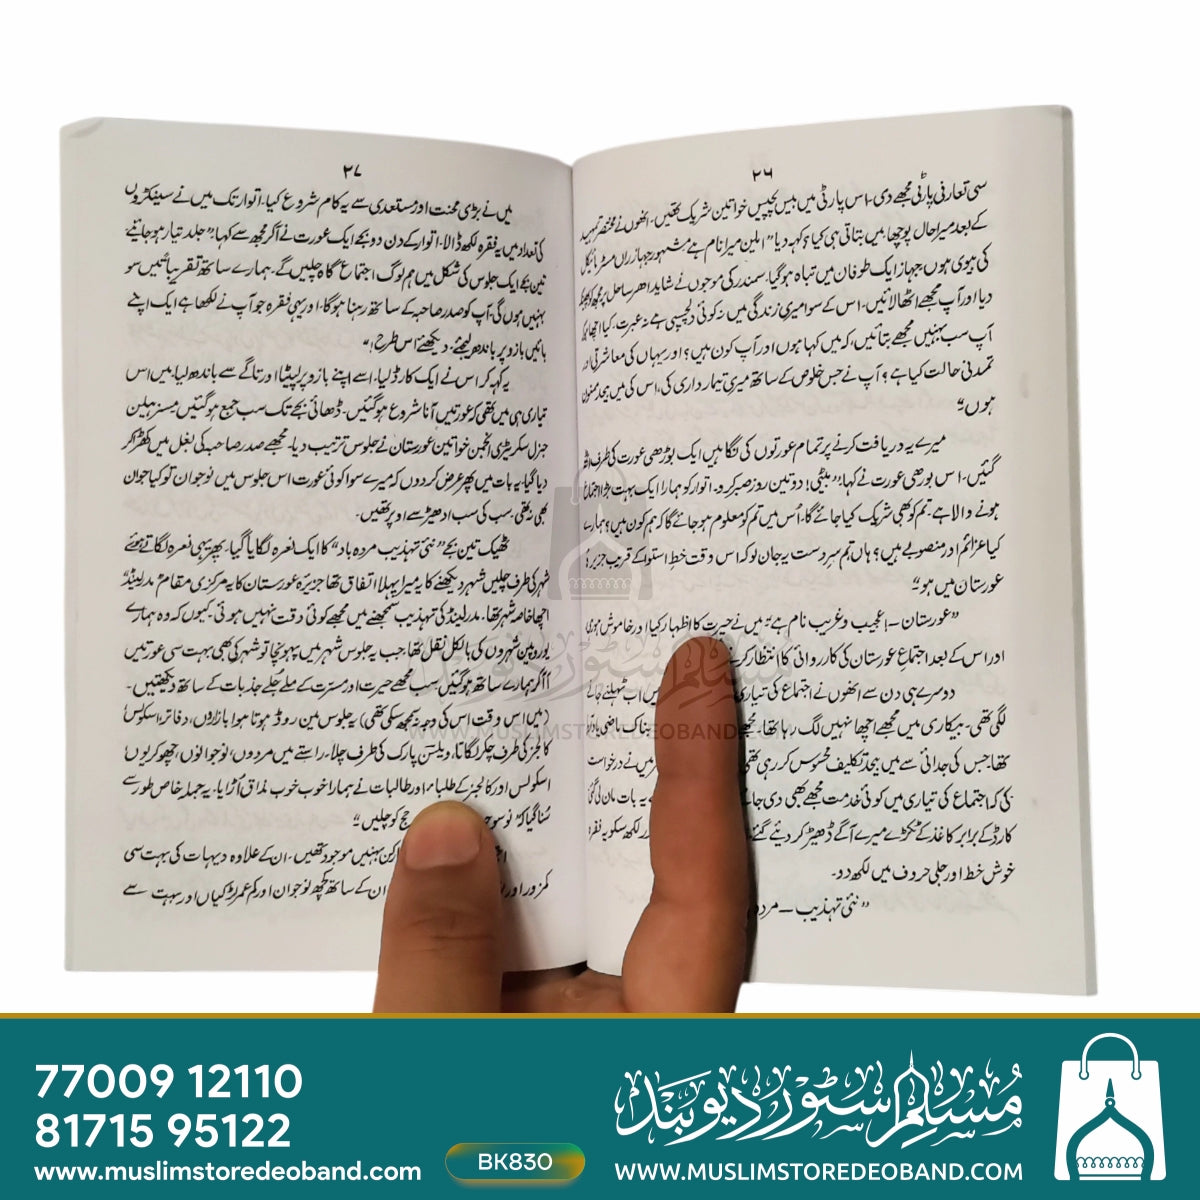 ۲۶
سی تعارفی پارٹی مجھے دی۔ اس پارٹی میں بیس پچیس خواتین شریک تھیں۔ انھوں نے مختصر تمہید
کے بعد میرا حال پوچھا۔ میں بتاتی ہی کیا؟ کہہ دیا "ایلین میرا نام ہے مشہور جہازراں مسٹر مائیکل
کی بیوی ہوں، جہاز ایک طوفان میں تباہ ہو گیا۔ سمندر کی موجوں نے شاید ادھر ساحل پر مجھے پھینک
دیا اور آپ مجھے اٹھا لائیں۔ اس کے سوا میری زندگی میں نہ کوئی دلچسپی ہے نہ عبرت۔ کیا اچھا ہو
آپ سب بہنیں مجھے بتائیں، کہ میں کہاں ہوں اور آپ کون ہیں؟ اور یہاں کی معاشرتی اور
تمدنی حالت کیا ہے؟ آپ نے جس خلوص کے ساتھ میری تیمارداری کی، اس کی میں بیحد ممنون
ہوں"
میرے یہ دریافت کرنے پر تمام عورتوں کی نگاہیں ایک بوڑھی عورت کی طرف اٹھ
گئیں۔ اس بوڑھی عورت نے کہا: "بیٹی! دو تین روز صبر کرو۔ اتوار کو ہمارا ایک بہت بڑا اجتماع
ہونے والا ہے۔ تم کو بھی شریک کیا جائے گا، اُس میں تم کو معلوم ہو جائے گا کہ ہم کون ہیں؟ ہمارے
کیا عزائم اور منصوبے ہیں؟ ہاں تم سردست یہ جان لو کہ اس وقت خط استوا کے قریب جزیرہ
عورستان میں ہو"
"عورستان ــ عجیب و غریب نام ہے" میں نے حیرت کا اظہار کیا اور خاموش ہوگئی
اور اس کے بعد اجتماع عورستان کی کارروائی کا انتظار کرنے
دوسرے ہی دن سے انھوں نے اجتماع کی تیاری میں اب ٹہلنے جانے
لگی تھی۔ بیکاری میں مجھے اچھا نہیں لگ رہا تھا۔ ناک ماضی یاد آتا
تھا، جس کی جدائی سے میں بیحد تکلیف محسوس کر رہی تھی میں نے درخواست
کی کہ اجتماع کی تیاری میں کوئی خدمت مجھے بھی دی جائے یہ بات مان لی گئی
کارڈ کے برابر کاغذ کے ٹکڑے میرے آگے ڈھیر کر دیئے گئے لکھ سکو یہ فقرہ
خوش خط اور جلی حروف میں لکھ دو۔
"نئی تہذیب ــ مردہ
۲۷
میں نے بڑی محنت اور مستعدی سے یہ کام شروع کیا۔ اتوار تک میں نے سینکڑوں
کی تعداد میں یہ فقرہ لکھ ڈالا۔ اتوار کے دن دو بجے ایک عورت نے آ کر مجھ سے کہا: "جلد تیار ہو جائیے
تین بجے ایک جلوس کی شکل میں ہم لوگ اجتماع گاہ چلیں گے۔ ہمارے ساتھ تقریباً تیس سو
بہنیں ہوں گی۔ آپ کو صدر صاحبہ کے ساتھ رہنا ہو گا۔ اور یہی فقرہ جو آپ نے لکھا ہے ایک اپنے
بائیں بازو پر باندھ لیجئے۔ دیکھئے اس طرح!"
یہ کہہ کر اس نے ایک کارڈ لیا۔ اسے اپنے بازو پر لپیٹا اور تاگے سے باندھ لیا۔ میں اس
تیاری ہی میں تھی کہ عورتیں آنا شروع ہو گئیں۔ ڈھائی بجے تک سب جمع ہو گئیں مسز ہلین
جنرل سکریٹری انجمن خواتین عورستان نے جلوس ترتیب دیا۔ مجھے صدر صاحبہ کی بغل میں کھڑا کر
دیا گیا۔ یہ بات میں پھر عرض کر دوں کہ میرے سوا کوئی عورت اس جلوس میں نوجوان تو کیا جوان
بھی نہ تھی۔ سب کی سب ادھیڑ سے اوپر تھیں۔
ٹھیک تین بجے "نئی تہذیب مردہ باد" کا ایک نعرہ لگایا گیا۔ پھر یہی نعرہ لگاتے ہوئے
شہر کی طرف چلیں شہر دیکھنے کا یہ میرا پہلا اتفاق تھا جزیرہ عورستان کا یہ مرکزی مقام "مدرلینڈ"
اچھا خاصہ شہر تھا۔ مدرلینڈ کی تہذیب سمجھنے میں مجھے کوئی دقت نہیں ہوئی، کیوں کہ وہ ہمارے
یوروپین شہروں کی بالکل نقل تھا، جب یہ جلوس شہر میں پہونچا تو شہر کی بھی بہت سی عورتیں
آ آ کر ہمارے ساتھ ہو گئیں۔ سب مجھے حیرت اور مسرت کے ملے جلے جذبات کے ساتھ دیکھتیں۔
(میں اس وقت اس کی وجہ نہ سمجھ سکی تھی) یہ جلوس مین روڈ ہوتا ہوا بازاروں، دفاتر، اسکولس
کالجز کی طرف چکر لگاتا، ویلسن پارک کی طرف چلا، راستے میں مردوں، نوجوانوں، چھوکریوں
اسکولس اور کالجز کے طلباء اور طالبات نے ہمارا خوب خوب مذاق اُڑایا۔ یہ جملہ خاص طور سے
سُنا گیا کہ "نو سو حج کو چلیں"
بہنیں موجود تھیں۔ ان کے علاوہ دیہات کی بہت سی
کمزور اور ان کے ساتھ کچھ نوجوان اور کم عمر لڑکیاں اور بہت سے
مسلم سٹور دیوبند
WWW.MUSLIMSTOREDEOBAND.COM
77009 12110
81715 95122
www.muslimstoredeoband.com
BK830
مسلم سٹور دیوبند
WWW.MUSLIMSTOREDEOBAND.COM